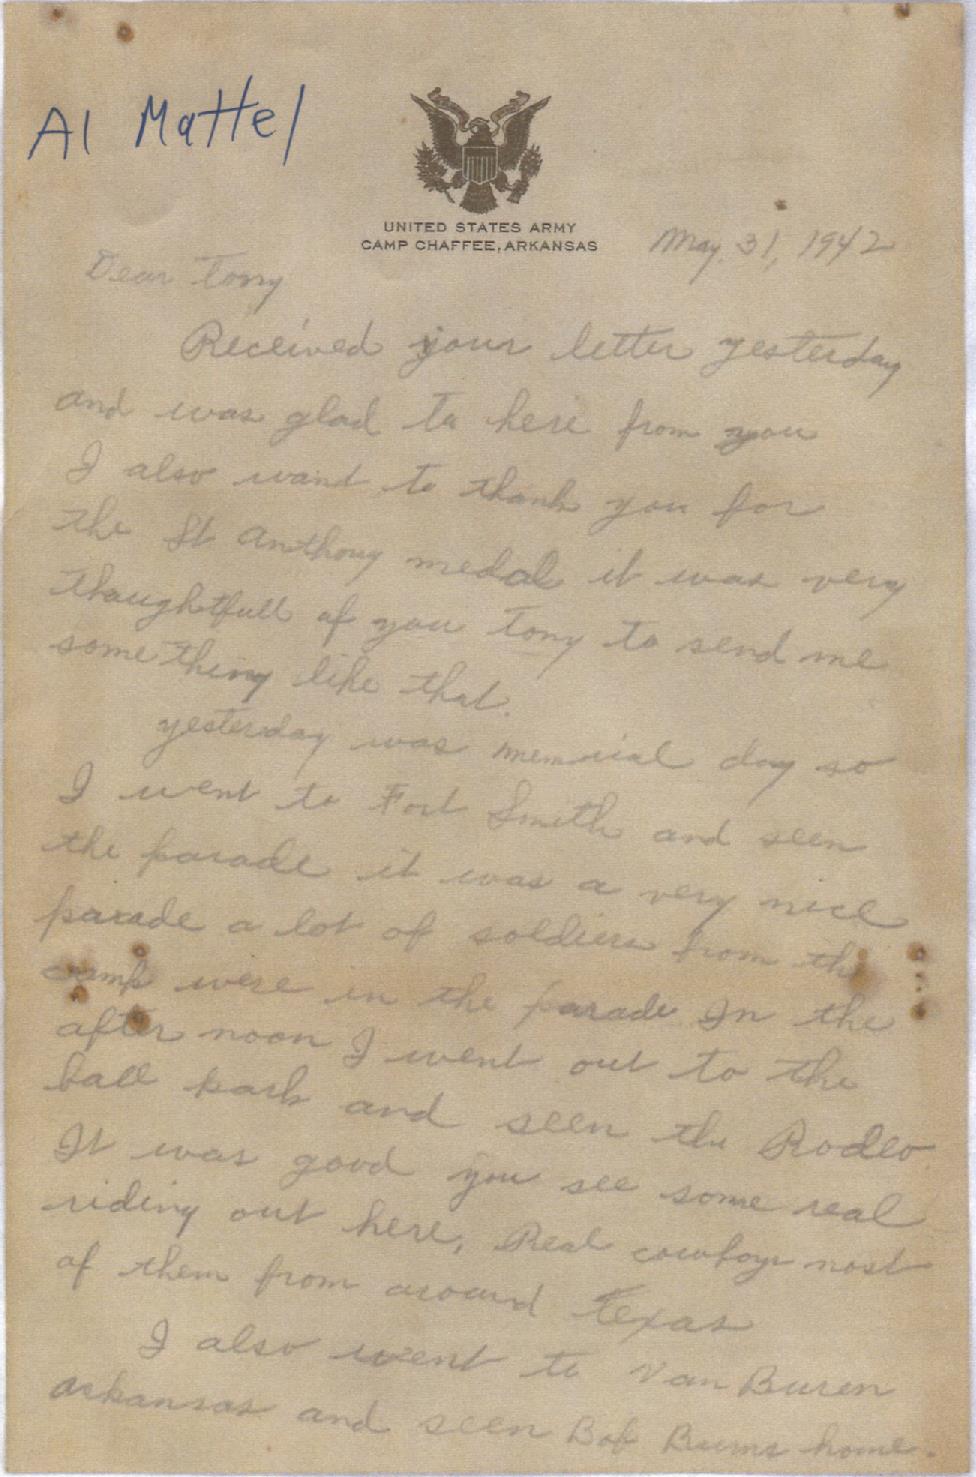 Al Mattel
UNITED STATES ARMY
CAMP CHAFFEE, ARKANSAS
May, 31, 1942
Dear Tony
Received your letter yesterday
and was glad to here from you
I also want to thank you for
the St Anthony medal it was very
thoughtfull of you Tony to send me
some thing like that.
yesterday was memorial day so
I went to Fort Smith and seen
the parade it was a very nice
parade a lot of soldiers from the
camp were in the parade In the
after noon I went out to the
ball park and seen the Rodeo
It was good you see some real
riding out here, Real cowboys most
of them from around Texas
I also went to Van Buren
arkansas and seen Bob Burns home.